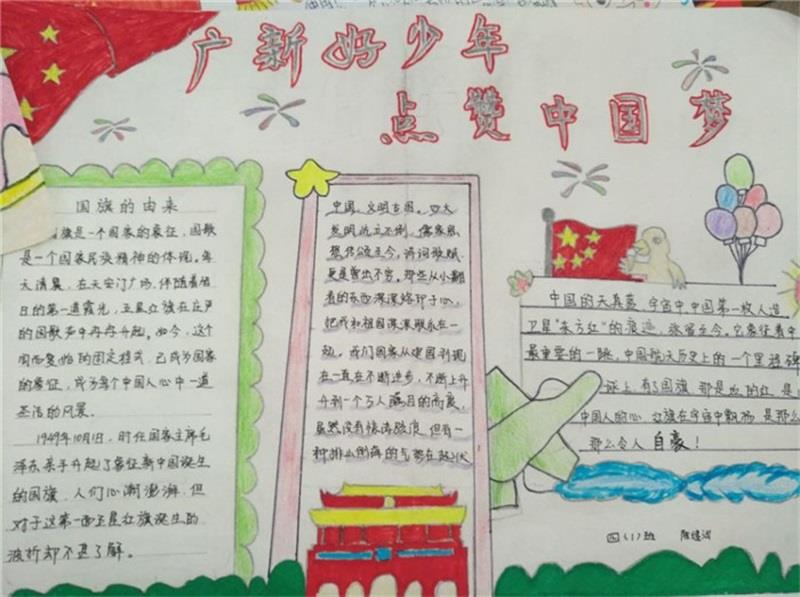 广新好少年
点赞中国梦
国旗的由来
国旗是一个国家的象征，国歌
是一个国家民族精神的体现。每
天清晨，在天安门广场，伴随着旭
日的第一道霞光，五星红旗在庄严
的国歌声中冉冉升起。如今，这个
周而复始的固定程式，已成为国家
的象征，成为每个中国人心中一道
圣洁的风景。
1949年10月1日，时任国家主席毛
泽东亲手升起了象征新中国诞生
的国旗，人们心潮澎湃，但
对于这第一面五星红旗诞生的
波折却不甚了解。
中国，文明古国。四大
发明屹立不倒，儒家思
想传颂至今，诗词歌赋
更是层出不穷。那些从小翻
看的东西深深烙印于心，
把我和祖国深深联系在一
起。我们国家从建国到现
在一直在不断进步，不断上升
升到一个万人瞩目的高度，
虽然没有惊涛骇浪，但有一
种排山倒海的气势在起伏
中国的天真蓝，宇宙中，中国第一枚人造
卫星"东方红"的痕迹，依留至今。它象征着中
最重要的一跳，中国航天历史上的一个里程碑
证上，有了国旗，那是血的红，是
中国人的心，红旗在宇宙中飘扬，是那么
那么令人自豪！
四（1）班